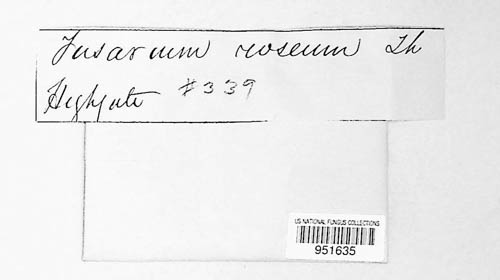 Fusarium roseum Lk
Highgate #339
US NATIONAL FUNGUS COLLECTIONS
951635